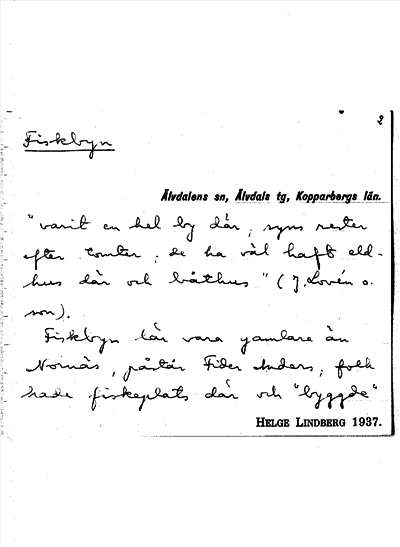 2
Fiskbyn
Älvdalens sn, Älvdals tg, Kopparbergs län.
"varit en hel by där, syns rester
efter tomter, de ha väl haft eld-
hus där och båthus" (J. Lovén o.
son).
Fiskbyn lär vara gamlare än
Nornäs, påstår Fider Anders, folk
hade fiskeplats där och "byggde"
HELGE LINDBERG 1937.